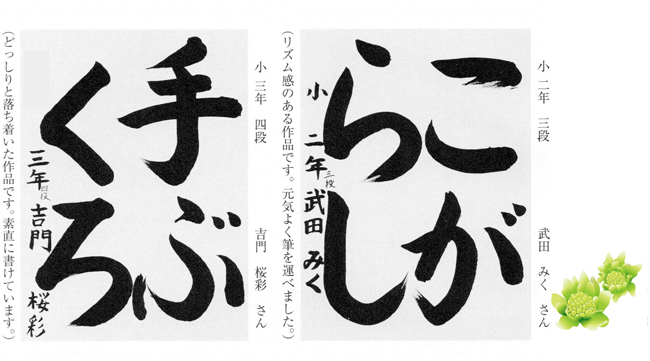 小二年 三段 武田 みく さん
こが
らし
小 二年 三段 武田 みく
(リズム感のある作品です。元気よく筆を運べました。)
小三年 四段 吉門 桜彩 さん
手ぶ
くろ
三年 四段 吉門 桜彩
(どっしりと落ち着いた作品です。素直に書けています。)